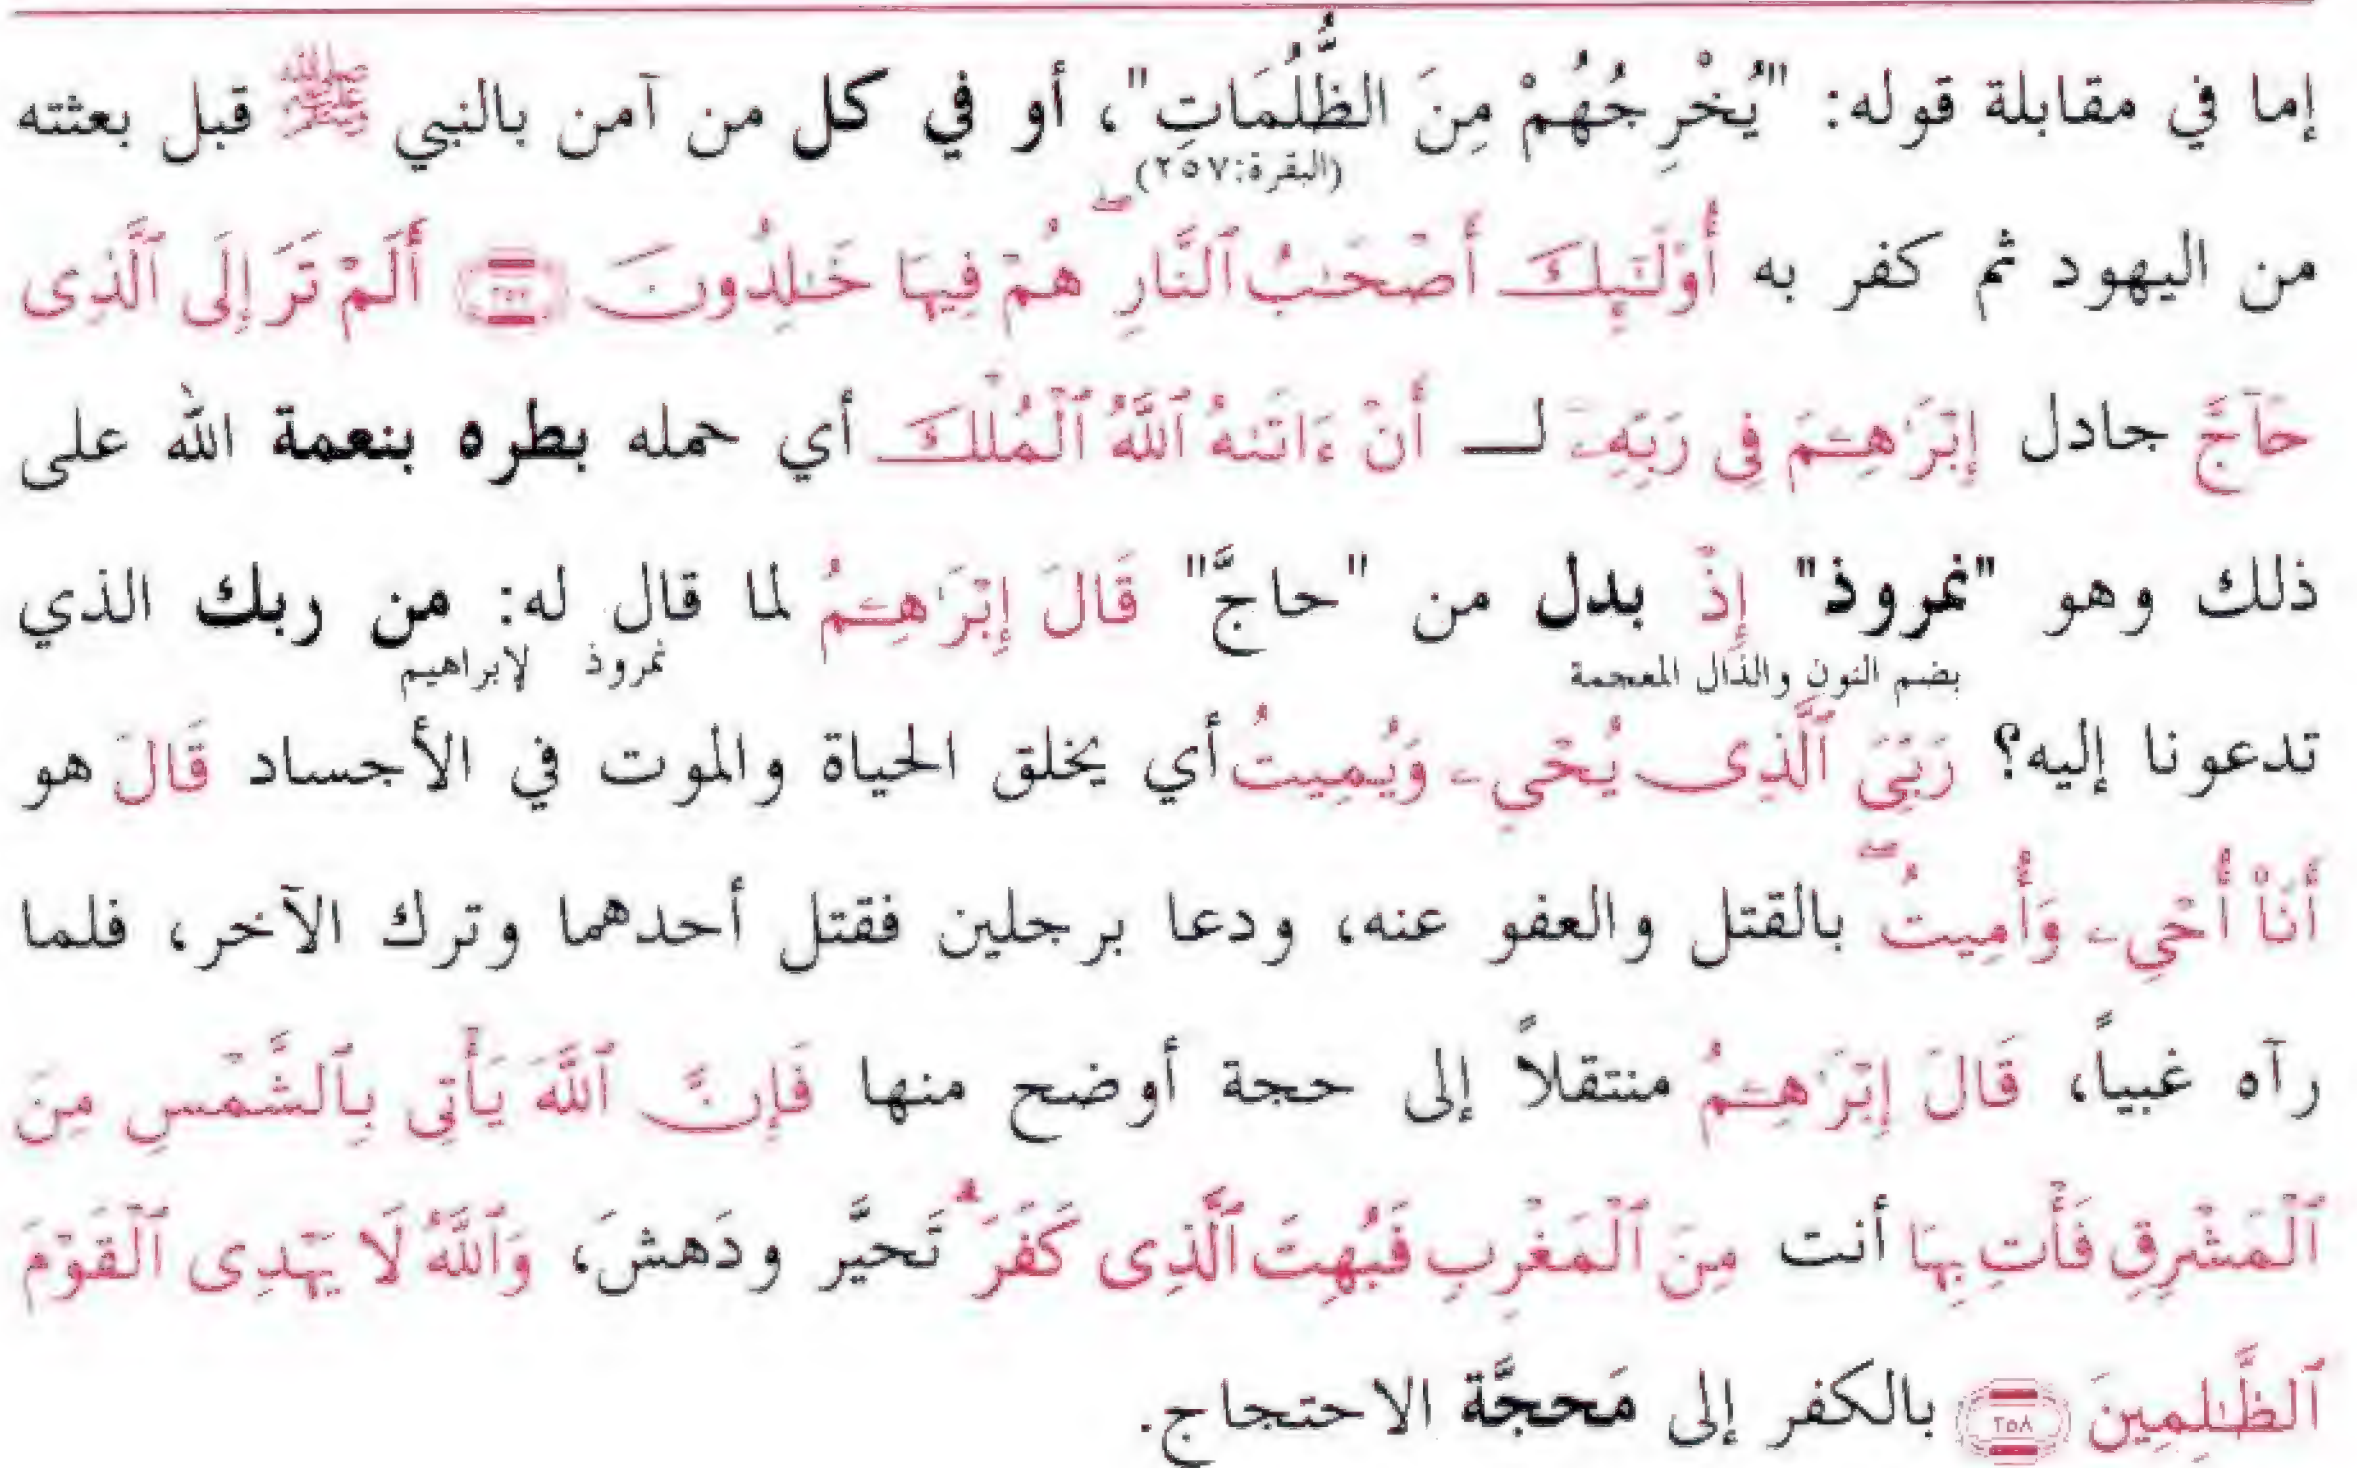 إما في مقابلة قوله: "يُخْرِجُهُمْ مِنَ الظُّلُمَاتِ"، أو في كل من آمن بالنبي ﷺ قبل بعثته
(البقرة:٢٥٧)
من اليهود ثم كفر به أُوْلَـٰٓئِكَ أَصْحَـٰبُ ٱلنَّارِ ۖ هُمْ فِيهَا خَـٰلِدُونَ ٢٥٧ أَلَمْ تَرَ إِلَى ٱلَّذِى
حَآجَّ جادل إِبْرَٰهِـۧمَ فِى رَبِّهِۦٓ لـ أَنْ ءَاتَىٰهُ ٱللَّهُ ٱلْمُلْكَ أي حمله بطره بنعمة الله على
ذلك وهو "نمروذ" إِذْ بدل من "حاجَّ" قَالَ إِبْرَٰهِـۧمُ لما قال له: من ربك الذي
بضم النون والذال المعجمة نمروذ لإبراهيم
تدعونا إليه؟ رَبِّىَ ٱلَّذِى يُحْىِۦ وَيُمِيتُ أي يخلق الحياة والموت في الأجساد قَالَ هو
أَنَا۠ أُحْىِۦ وَأُمِيتُ ۖ بالقتل والعفو عنه، ودعا برجلين فقتل أحدهما وترك الآخر، فلما
رآه غبياً، قَالَ إِبْرَٰهِـۧمُ منتقلاً إلى حجة أوضح منها فَإِنَّ ٱللَّهَ يَأْتِى بِٱلشَّمْسِ مِنَ
ٱلْمَشْرِقِ فَأْتِ بِهَا أنت مِنَ ٱلْمَغْرِبِ فَبُهِتَ ٱلَّذِى كَفَرَ ۗ تَحيَّر ودَهشَ، وَٱللَّهُ لَا يَهْدِى ٱلْقَوْمَ
ٱلظَّـٰلِمِينَ ٢٥٨ بالكفر إلى مَحجَّة الاحتجاج.